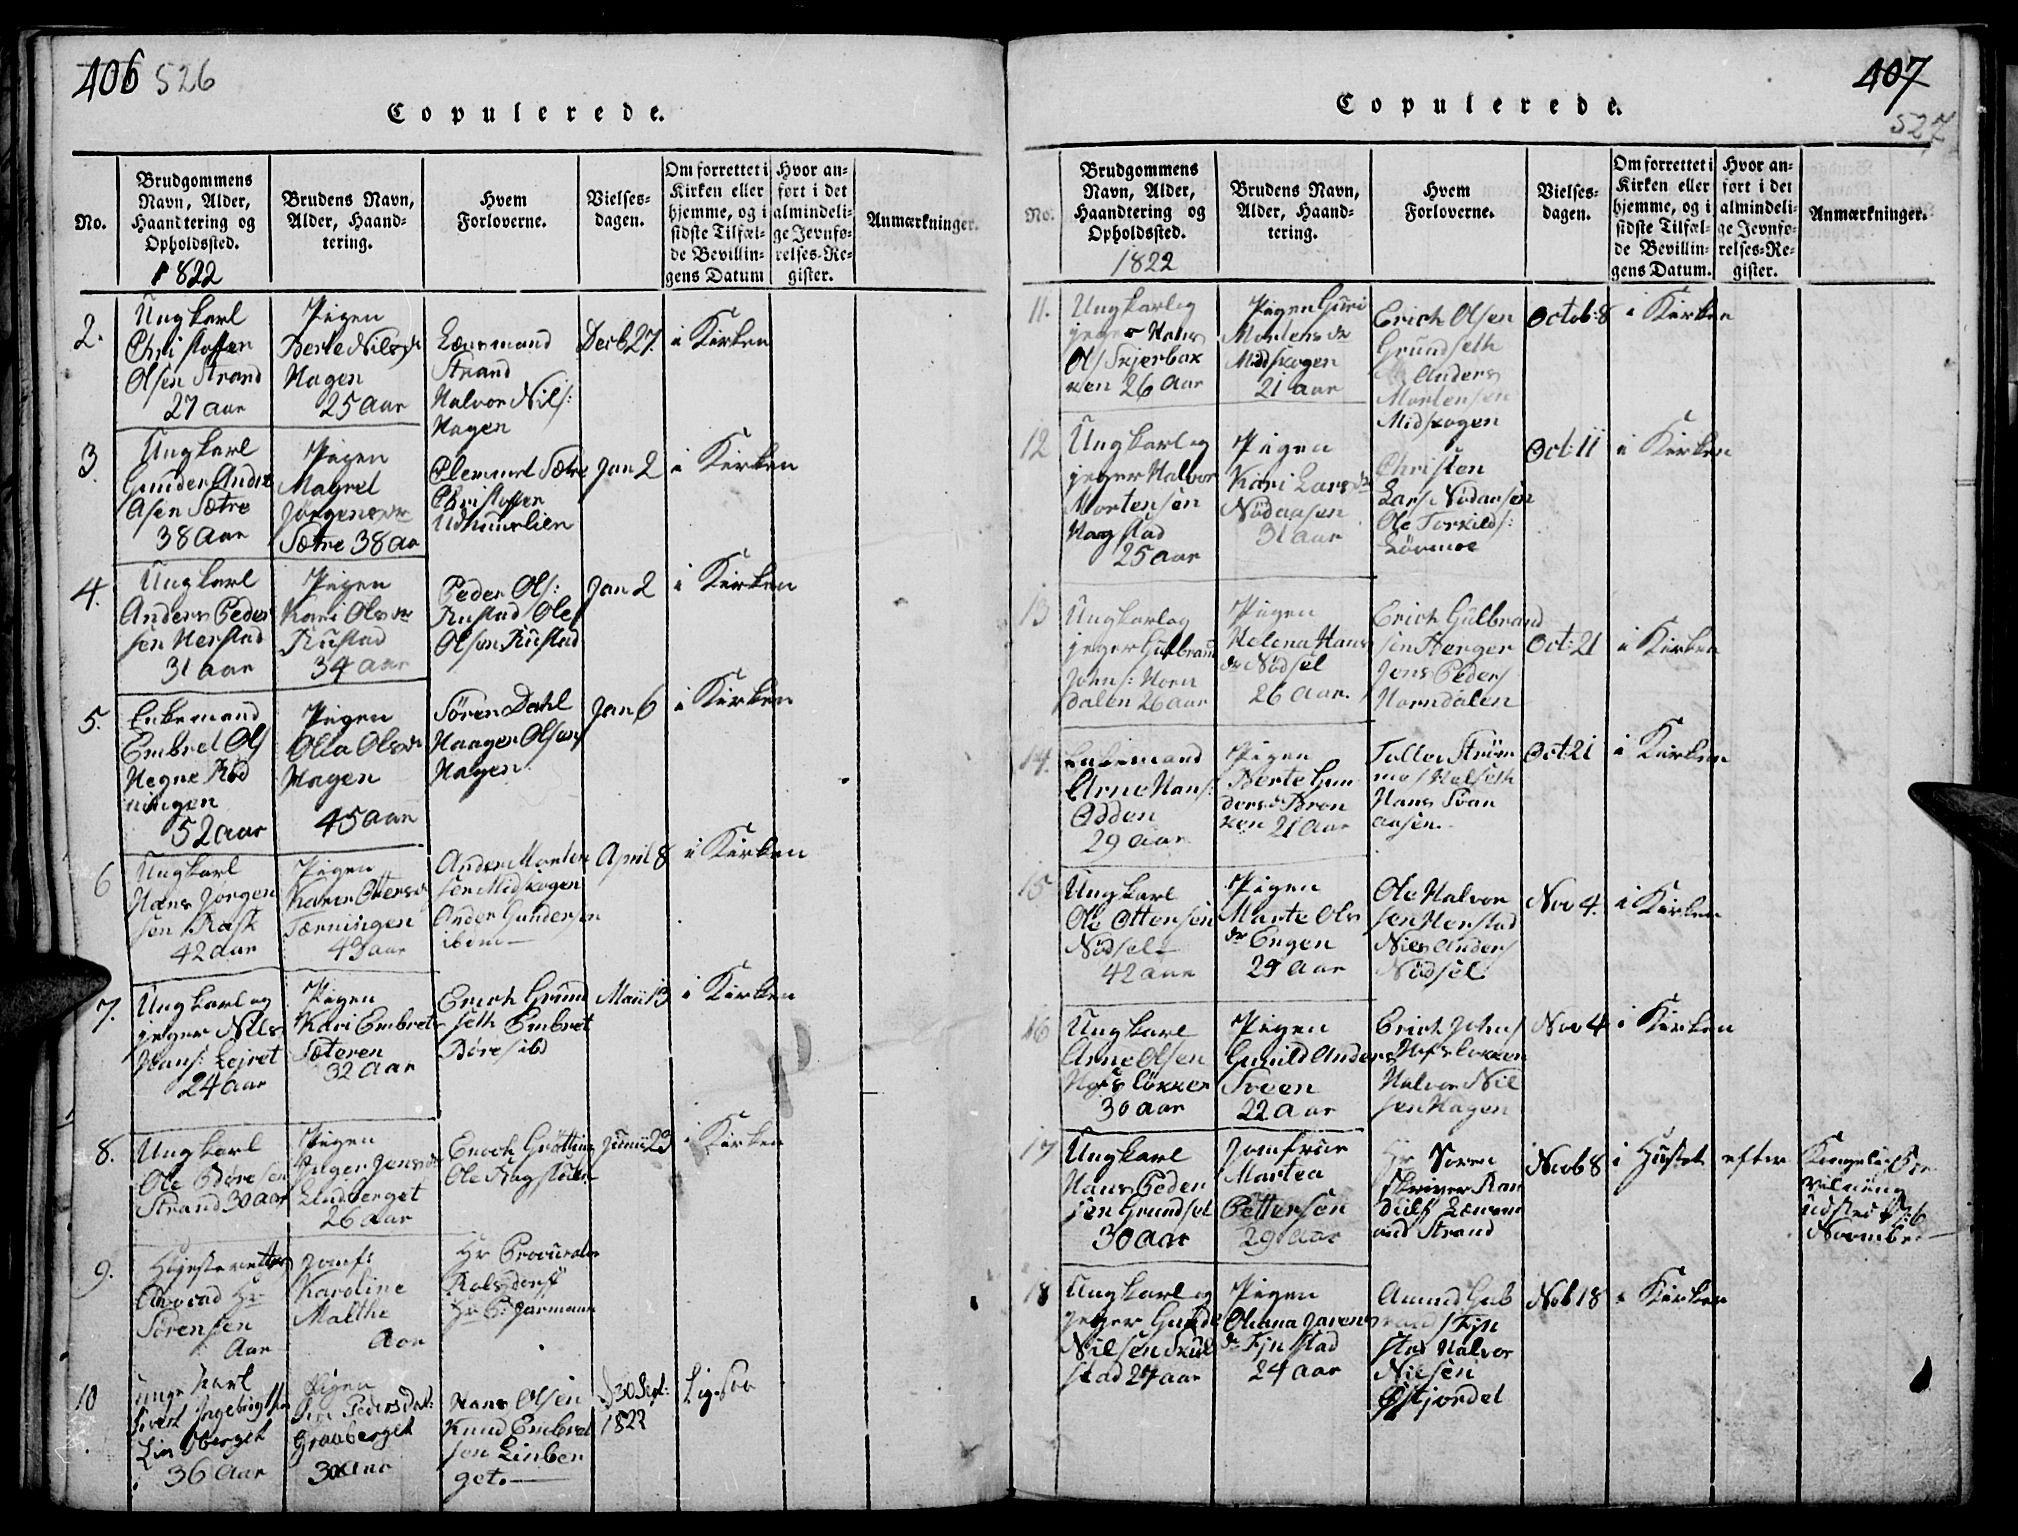 406 526
Copulerede.
No.
Brudgommens
Navn, Alder,
Haandtering og
Opholdssted.
1822
Brudens Navn,
Alder, Haand-
tering.
Hvem
Forloverne.
Vielses-
dagen.
Om forrettet i
Kirken eller
hjemme, og i
sidste Tilfæl-
de Bevillin-
gens Datum
Hvor an-
ført i det
almindeli-
ge Jevnfø-
relses-Re-
gister.
Anmærkninger.
2.
Ungkarl
Christoffer
Olsen Strand
27 Aar
Pigen
Berte Nilsdr
Hagen
25 Aar
Lænsmand
Strand
Halvor Nils:
Hagen
Decb 27.
i Kirken
3
Ungkarl
Gunder Andr
Asen Sætre
38 Aar
Pigen
Magrel
Jørgensdr
Sætre 38 Aa
Clemmet Sætre
Christoffer
Jan 2
i Kirken
4.
Ungkarl
Anders Peder
sen Herstad
31 Aar
Pigen
Kari Olsdr
Rustad
34 Aar
Peder Ols:
Rustad Ole
Olsen Rustad
Jan 2
i Kirken
5.
Enkemand
Embret Ols
Hegne Rød
ningen
52 aar
Pigen
Olia Olsdr
Hagen
45 Aar
Sören Dahl
Haagen Olsen
Hagen
Jan 6
i Kirken
6
Ungkarl
Hans Jørgen
sen Rask
42 Aar
Pigen
Karen Ottersdr
Tærningen
43 Aar
Ander Morten
sen Midskogen
Ander Gundersen
ibem
April 8
i Kirken
7.
Ungkarl og
jeger Nils
Hans: Lejret
24 Aar
Pigen
Kari Embrets
Sæteren
32 Aar
Erich Grund
seth Embret
Börresibd
Maii 13
i Kirken
8.
Ungkarl
Ole Börresen
Strand 30 Aar
Pigen
Inger Jensdr
Lindberget
26 Aar
Enoch Grötting
Ole Ragstuen
Junii 23
i Kirken
9.
Højesteretts
Advocad Hr
Sörensen
Aar
Jomfr
Karoline
Malthe
Aar
Hr Procurator
Rolsdorff
Hr P: Garmann
10
Unge karl
Sivert Ingebrigtsen
Lindberget
36 Aar
Pigen
Siri Pedersdat:
Graaberget
30 Aar
Hans Olsen
Knud Embret
sen Linber
get.
d 30 Sept:
1822
Ligesaa
407
527
Copulerede.
No.
Brudgommens
Navn, Alder,
Haandtering og
Opholdssted.
1822
Brudens Navn,
Alder, Haand-
tering.
Hvem
Forloverne.
Vielses-
dagen.
Om forrettet i
Kirken eller
hjemme, og i
sidste Tilfæl-
de Bevillin-
gens Datum.
Hvor an-
ført i det
almindeli-
ge Jevnfø-
relses-Re-
gister.
Anmærkninger.
11.
Ungkarl og
jeger Hans
Ols Skjerbæk
ken 26 Aar
Pigen Guri
Mortensdr
Midskogen
21 aar
Erich Olsen
Grundseth
Anders
Mortensen
Midskogen
Octob: 8
i Kirken
12
Ungkarl og
jeger Halvor
Mortensen
Hagstad
25 Aar
Pigen
Kari Larsdr
Nödaasen
31 aar
Christen
Lars Nödaasen
Ole Torkilds:
Lövmoe
Oct: 11
i Kirken
13
Ungkarl og
jeger Gulbrand
Johns: Horn
dalen 26 Aar
Pigen
Helena Hans
dr Nödsel
26 Aar.
Erich Gulbrand
sen Berger
Jens Peders
Horndalen
Oct: 21
i Kirken
14.
Enkemand
Arne Hans:
Odden
29 Aar
Pigen
Berte Gun
dersdr Bron
ken 21 Aar
Tollev Ström
moe Helseth
Hans Svan
aasen.
Oct: 21
i Kirken
15
Ungkarl
Ole Ottersen
Nödsel
42 aar
Pigen
Marte Ols
dr Engen
29 Aar
Ole Halvor
sen Herstad
Niels Anders
Nödsel
Nov 4.
i Kirken
16
Ungkarl
Arne Olsen
Hofs løkken
30 Aar
Pigen
Gunild Anders
Soeen
22 Aar
Erich Johns
Hofsløkken
Halvor Nil
sen Hagen
Nov 4
i Kirken
17
Ungkarl
Hans Peder
sen Grundset
30 Aar
Jomfrue
Martea
Pettersen
29 Aar
Hr Soren
Skriver Ran
dulf Lænsm
and Strand
Novb 8
i Huset efter
Kongelig Be
vilning
udsted d: 6
Novmber
18
Ungkarl og
jeger Gunde
Nilsen Skul
stad 24 aar
Pigen
Oliana Jørens
dr Fjnstad
24 Aar
Amund Gul
brands Fjn
stad Halvor
Nielsen
Østjordet
Nob 18
i Kirken